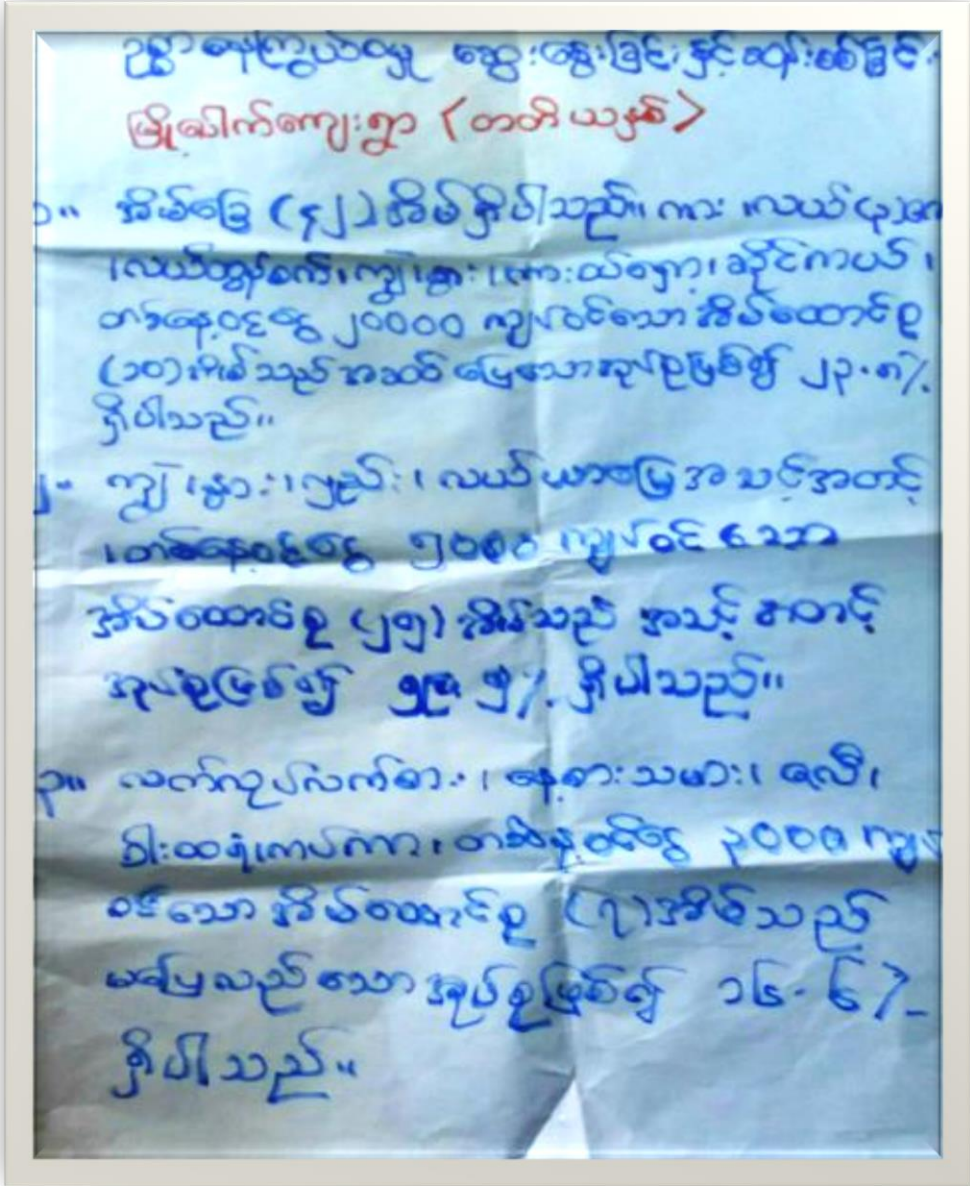 ဥစ္စာနေကြွယ်ဝမှု ဆွေးနွေးခြင်းနှင့်ဆန်းစစ်ခြင်း
မြို့ပေါက်ကျေးရွာ (တတိယနှစ်)
၁။ အိမ်ခြေ (၄၂) အိမ်ရှိပါသည်။ ကား၊ လယ် (၃)
၊လယ်ထွန်စက်၊ ကျွဲ၊ နွား၊ ၊ဆိုင်ကယ်၊
တစ်နေ့ဝင်ငွေ ၂၀၀၀၀ ကျပ်ဝင်သော အိမ်ထောင်စု
(၁၀) အိမ်သည် အဆင်ပြေသောအုပ်စုဖြစ်၍ ၂၃.၈%
ရှိပါသည်။
၂။ ကျွဲ၊ နွား၊ လှည်း၊ လယ်ယာမြေအသင့်အတင့်
၊တစ်နေ့ဝင်ငွေ ၅၀၀၀ ကျပ်ဝင်သော
အိမ်ထောင်စု (၂၅) အိမ်သည် အသင့်အတင့်
အုပ်စုဖြစ်၍ ၅၉.၅% ရှိပါသည်။
၃။ လက်လုပ်လက်စား၊ နေ့စားသမား၊ ရေလီ၊
ဝါးထရံ၊ကပ်ကာ၊ တစ်နေ့ဝင်ငွေ ၃၀၀၀ ကျပ်
ဝင်သော အိမ်ထောင်စု (၇) အိမ်သည်
မပြေလည်သော အုပ်စုဖြစ်၍ ၁၆.၆%
ရှိပါသည်။